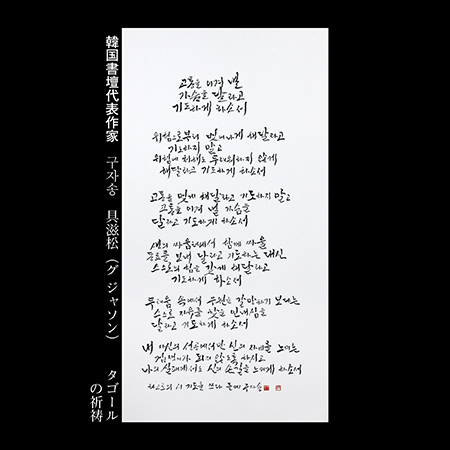 韓国書壇代表作家 구자송 具滋松 (グ ジャソン) タゴール
の祈祷
고통을 이겨 낼
가슴을 달라고
기도하게 하소서
위험으로부터 벗어나게 해달라고
기도하지 말고
위험에 처해도 두려워하지 않게
해달라고 기도하게 하소서
고통을 멎게 해달라고 기도하지 말고
고통을 이겨 낼 가슴을
달라고 기도하게 하소서
생의 싸움터에서 함께 싸울
동료를 보내 달라고 기도하는 대신
스스로의 힘을 갖게 해달라고
기도하게 하소서
두려움 속에서 구원을 갈망하기 보다는
스스로 자유를 찾을 인내심을
달라고 기도하게 하소서
내 자신의 성공에서만 신의 자비를 느끼는
겁쟁이가 되지 않도록 하시고
나의 실패에서도 신의 손길을 느끼게 하소서
타고르의 시 기도를 쓰다 구자송